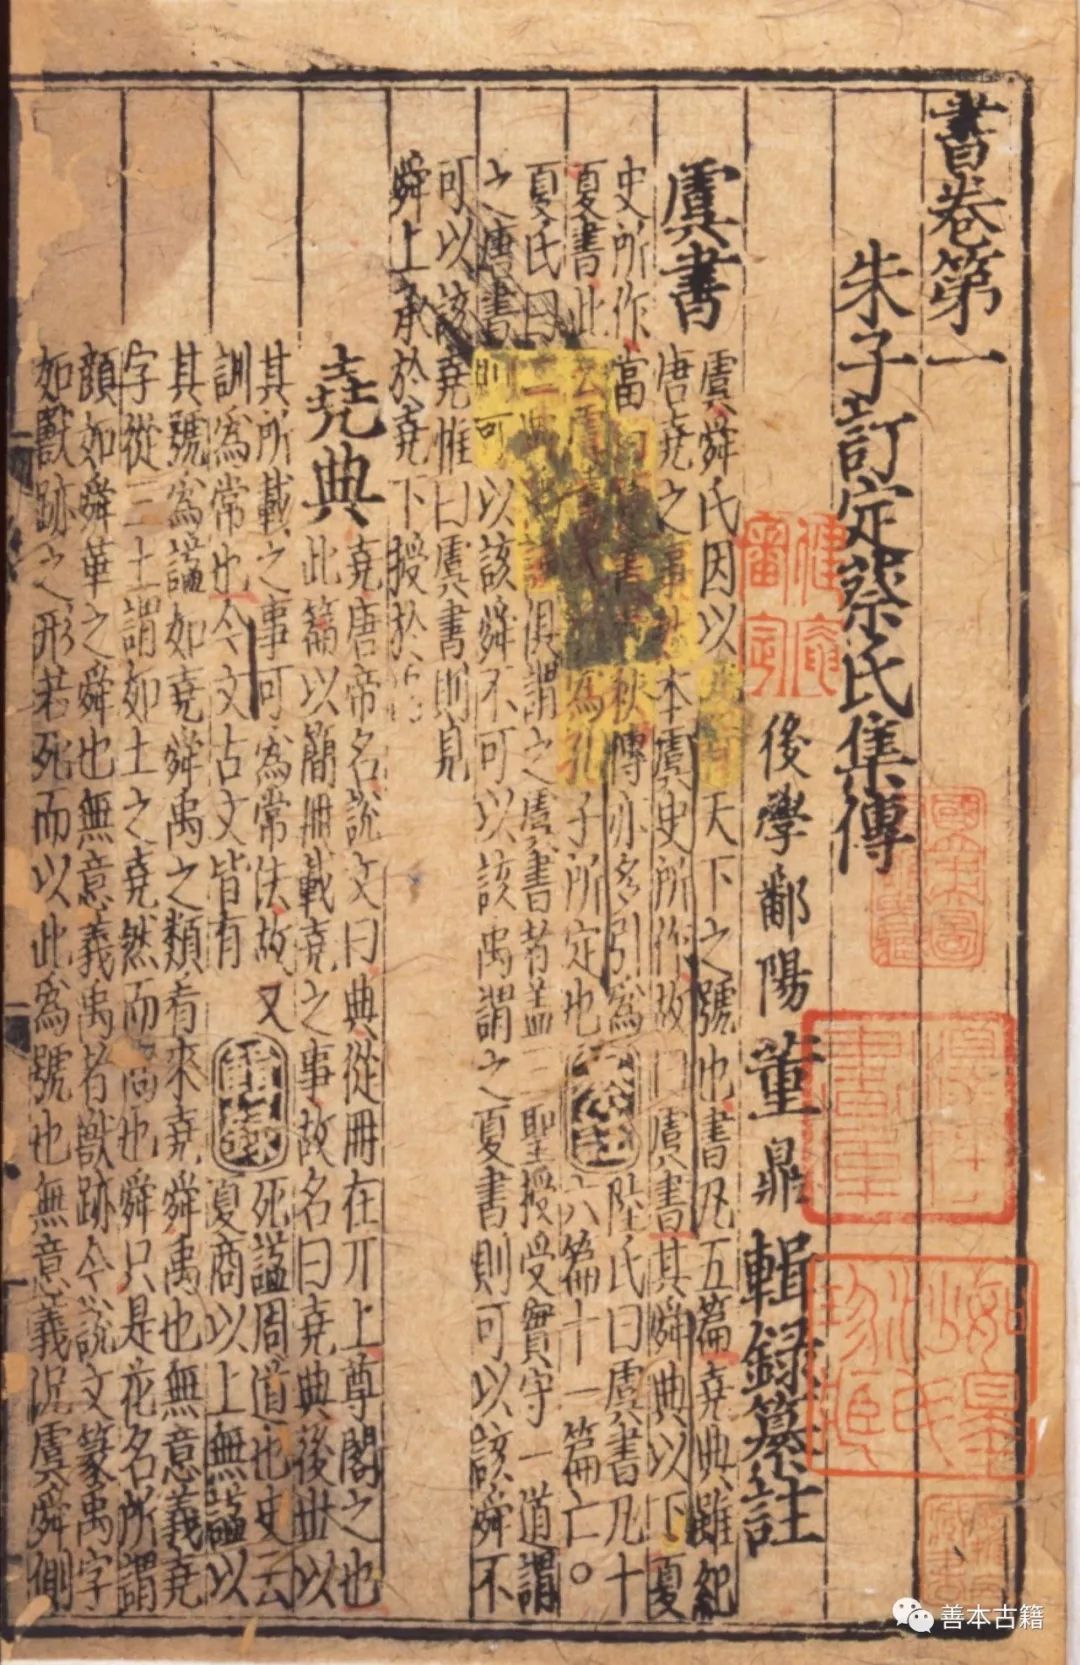 書卷第一
朱子訂定蔡氏集傳
後學鄱陽董鼎輯録纂註
虞書
虞舜氏因以 天下之號也書凡五篇堯典雖紀
唐堯之事 本虞史所作故曰虞書其舜典以下夏
史所作當曰 秋傳亦多引為
夏書此云虞 為孔子所定也 六篇十一篇亡○
陸氏曰虞書凡十
夏氏曰二典 俱謂之虞書者蓋三聖授受實守一道謂
之唐書則可以該舜不可以該禹謂之夏書則可以該舜不
可以該堯惟曰虞書則見
舜上承於堯下授於
堯典
堯唐帝名説文曰典從冊在丌上尊閣之也
此篇以簡冊載堯之事故名曰堯典後世以
其所載之事可為常法故又
訓為常也今文古文皆有
輯録
死謚周道也史云
夏商以上無謚以
其號為謚如堯舜禹之類看來堯舜禹也無意義堯
字從三土謂如土之堯然而高也舜只是花名所謂
顔如舜華之舜也無意義禹者獸跡今説文篆禹字
如獸跡之形若死而以此為號也無意義況虞舜側
善本古籍